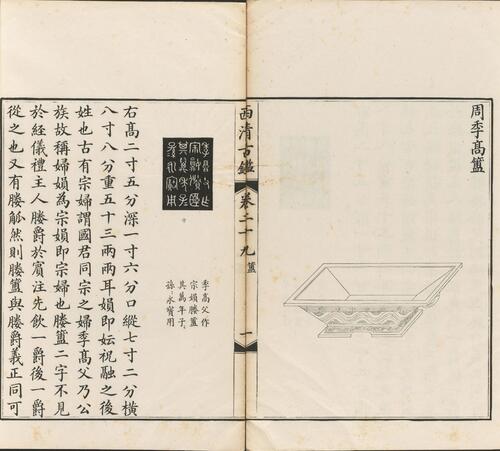 周季高簠
西清古鑑
卷二十九
簠
一
季高父作
宗媍媵簠
其萬年子
孫永寶用
右高二寸五分深一寸六分口縱七寸二分橫
八寸八分重五十三兩兩耳媍即妘祝融之後
姓也古有宗婦謂國君同宗之婦季高父乃公
族故稱婦媍為宗媍即宗婦也媵簠二字不見
於經儀禮主人媵爵於賓注先飲一爵後一爵
從之也又有媵觚然則媵簠與媵爵義正同可